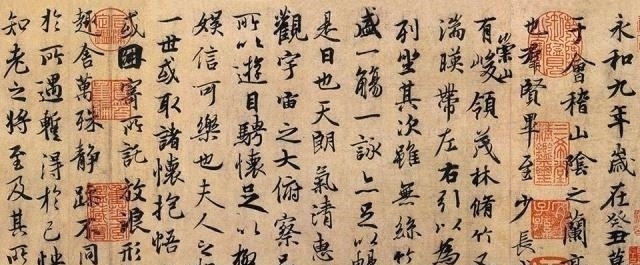 永和九年歲在癸丑暮
于會稽山陰之蘭亭
也羣賢畢至少長
有崇山峻領茂林脩竹又
湍暎帶左右引以為
列坐其次雖無絲竹
盛一觴一詠亦足以暢
是日也天朗氣清惠
觀宇宙之大俯察品
所以遊目騁懷足以極
娛信可樂也夫人之相
一世或取諸懷抱悟
或因寄所託放浪形
趣舍萬殊靜躁不同
於所遇蹔得於己快
知老之將至及其所